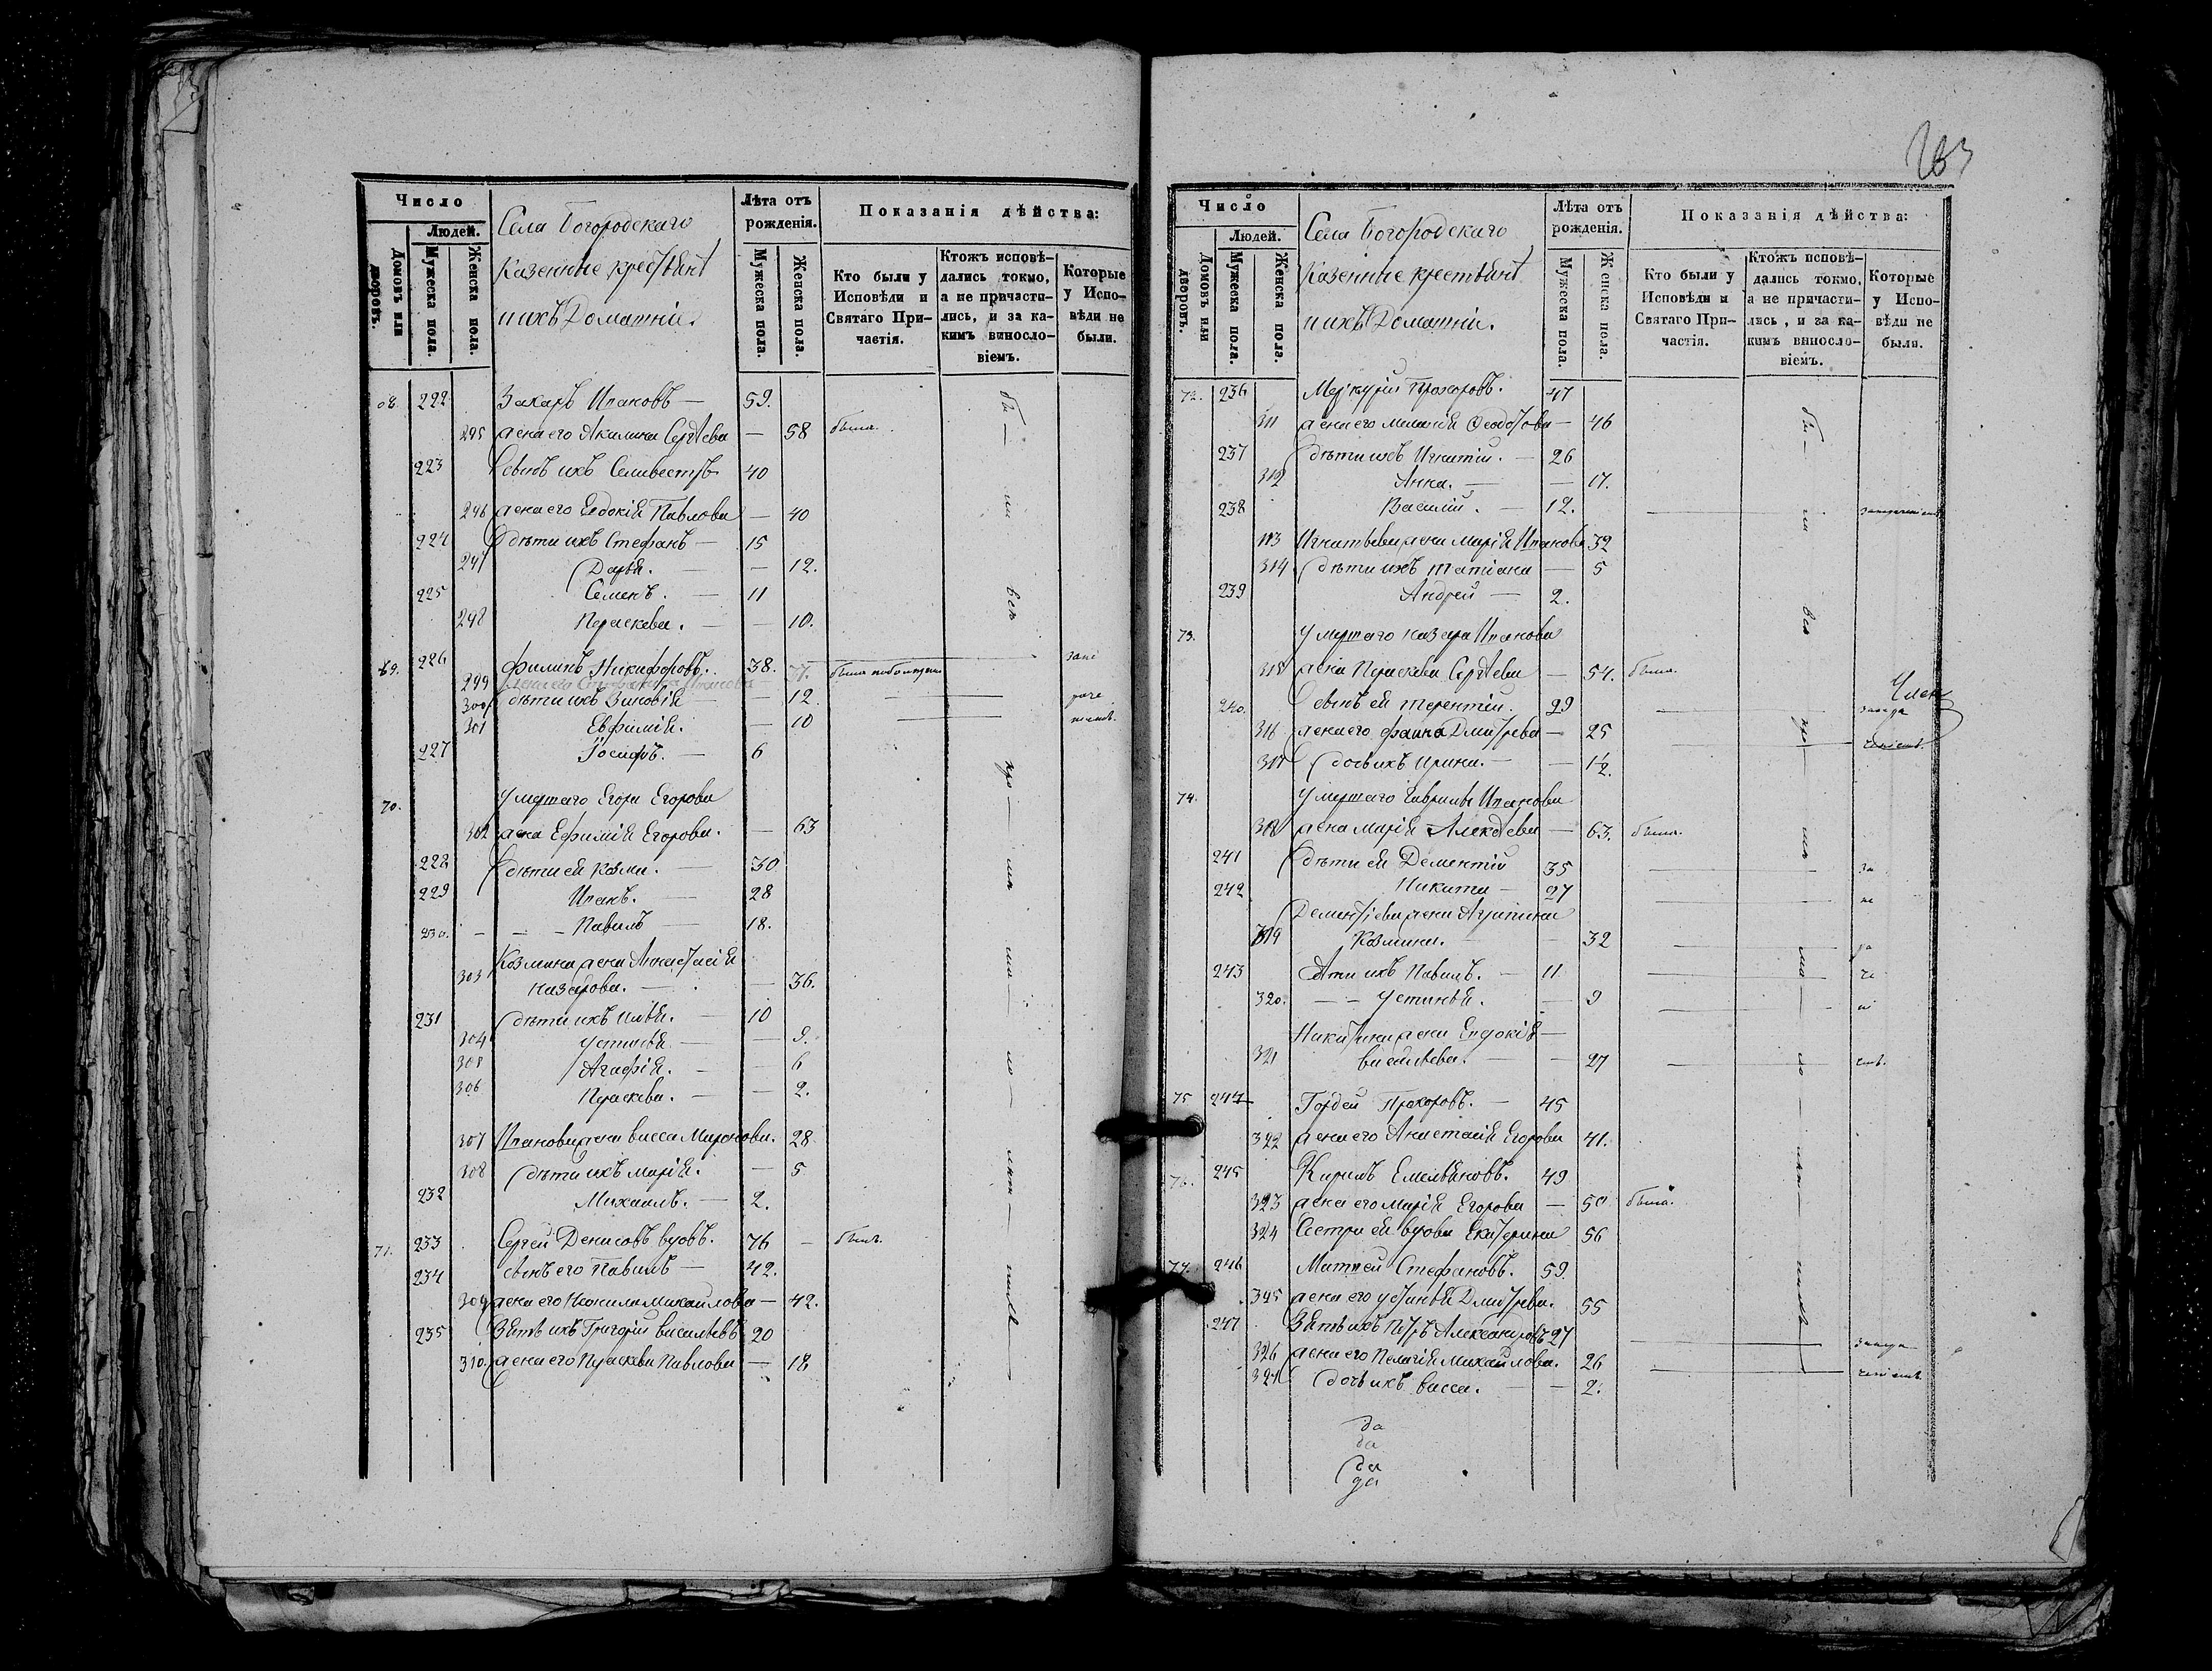 Число
Людей.
Домовъ или дворовъ.
Мужеска пола.
Женска пола.
Села Богородскаго
Казенные крестьяне
и ихъ Домашніе.
Лѣта отъ рожденія.
Мужеска пола.
Женска пола.
Показанія дѣйства:
Кто были у Исповѣди и Святаго Причастія.
Ктожъ исповѣдались токмо, а не причастились, и за какимъ винословіемъ.
Которые у Исповѣди не были.
68. 222 Захаръ Ивановъ — 59.
295 жена его Акилина Сергѣева — 58 была.
223 Сынъ ихъ Селивестръ 40
296 жена его Евдокія Павлова — 40
224 Дѣти ихъ Стефанъ — 15
297 Дарья. — — 12.
225 Семенъ. — 11
298 Параскева. — — 10.
69. 226 Филипъ Никифоровъ. 38.
299
300 дѣти ихъ Зиновія — 12
301 Евфимія. — 10
227 Іосифъ. — 6
70. Умершаго Егора Егорова
302 жена Ефимія Егорова. — 63
228 дѣти ея Козма. — 30
229 Иванъ. — 28
230. — — — Павилъ — 18.
Козмина жена Анастасія
303 Назарова. — — 36.
231 дѣти ихъ Илья. — 10
304 Устинья — — 9.
305 Агафія. — — 6
306 Параскева. — — 2.
307 Иванова жена Васса Миронова. 28
308 дѣти ихъ Марія. — 5
232 Михаилъ. — 2.
71. 233 Сергей Денисовъ вдовъ. 76 — былъ.
234 сынъ его Павилъ — 42.
309 жена его Неонила Михайлова — 42.
235 Зять ихъ Григорій Васильевъ 20
310. жена его Параскева Павлова — 18
263
Число
Людей.
Домовъ или дворовъ.
Мужеска пола.
Женска пола.
Села Богородскаго
Казенные крестьяне
и ихъ Домашніе.
Лѣта отъ рожденія.
Мужеска пола.
Женска пола.
Показанія дѣйства:
Кто были у Исповѣди и Святаго Причастія.
Ктожъ исповѣдались токмо, а не причастились, и за какимъ винословіемъ.
Которые у Исповѣди не были.
72. 236 Меркурій Прохоровъ. 47
311 жена его Меланія Ѳеодотова — 46
237 дѣти ихъ Игнатій. — 26
312 Анна. — — 17.
238 Василій. — 12.
313 Игнатьева жена Марія Иванова 32
314 дѣти ихъ Татіана — 5
239 Андрей — 2.
73. Умершаго Назара Иванова
315 жена Параскева Сергѣева — 54. была.
240. Сынъ ея Терентій. 29
316 жена его Фаина Дмитрева — 25
317 дочь ихъ Ирина. — — 1½.
74. Умершаго Гаврилы Иванова
318 жена Марія Алексѣева — 63. была.
241 дѣти ея Дементій 35
242 Никита — 27
Дементіева жена Агрипина
319 Козмина. — — 32
243 Дѣти ихъ Павилъ. — 11
320. — — Устинья. — 9
Никитина жена Евдокія —
321 Васильева. — — 27
75 244 Гордей Прохоровъ. — 45
322 жена его Анастасія Егорова 41.
76. 245 Кирилъ Емельяновъ. 49
323 жена его Марія Егорова — 50 была.
324 Сестра ея вдова Екатерина 56
77. 246 Матвей Стефановъ. 59.
325 жена его Устинья Дмитрева. 55
247 Зять ихъ Петръ Александровъ 27
326 жена его Пелагія Михайлова. 26
327 дочь ихъ Васса. — — 2.
да
да
да
да